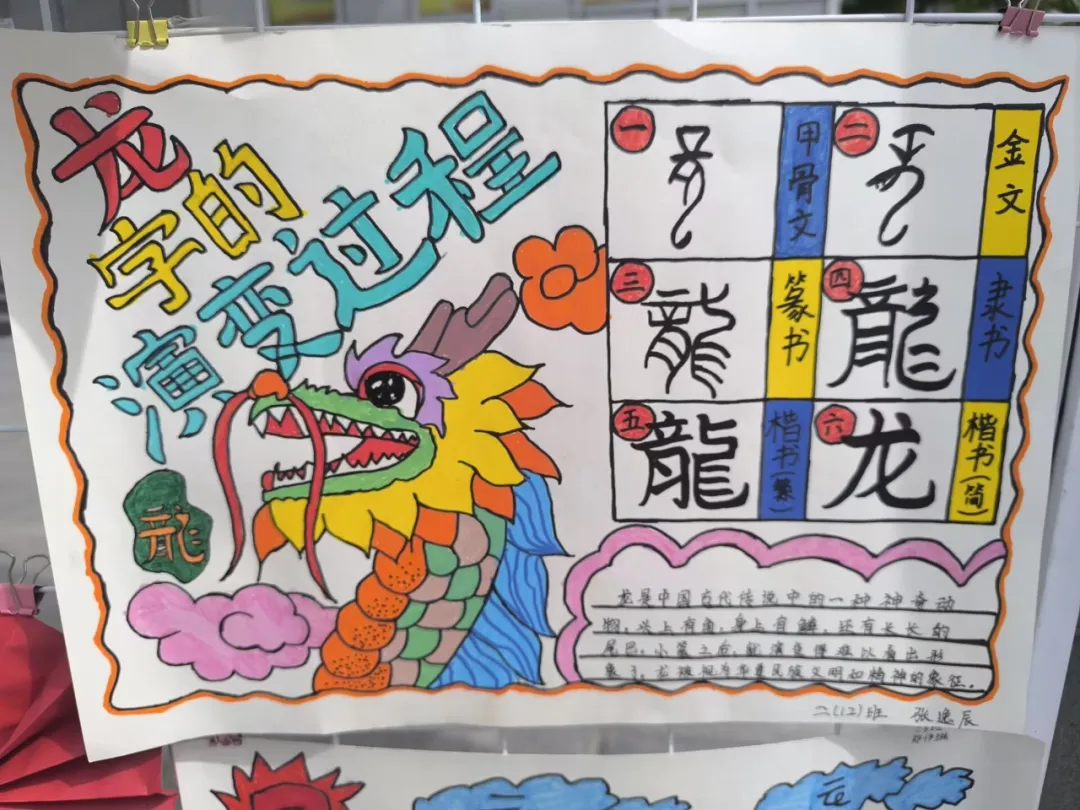 龙
字的
演变过程
一
甲骨文
二
金文
三
篆书
四
隶书
五
龍
楷书(繁)
六
龙
楷书(简)
龍
龙是中国古代传说中的一种神奇动
物，头上有角，身上有鳞，还有长长的
尾巴，小篆之后，龍演变得难以看出形
象了，龙被视为华夏民族文明和精神的象征。
二(12)班 张逸辰